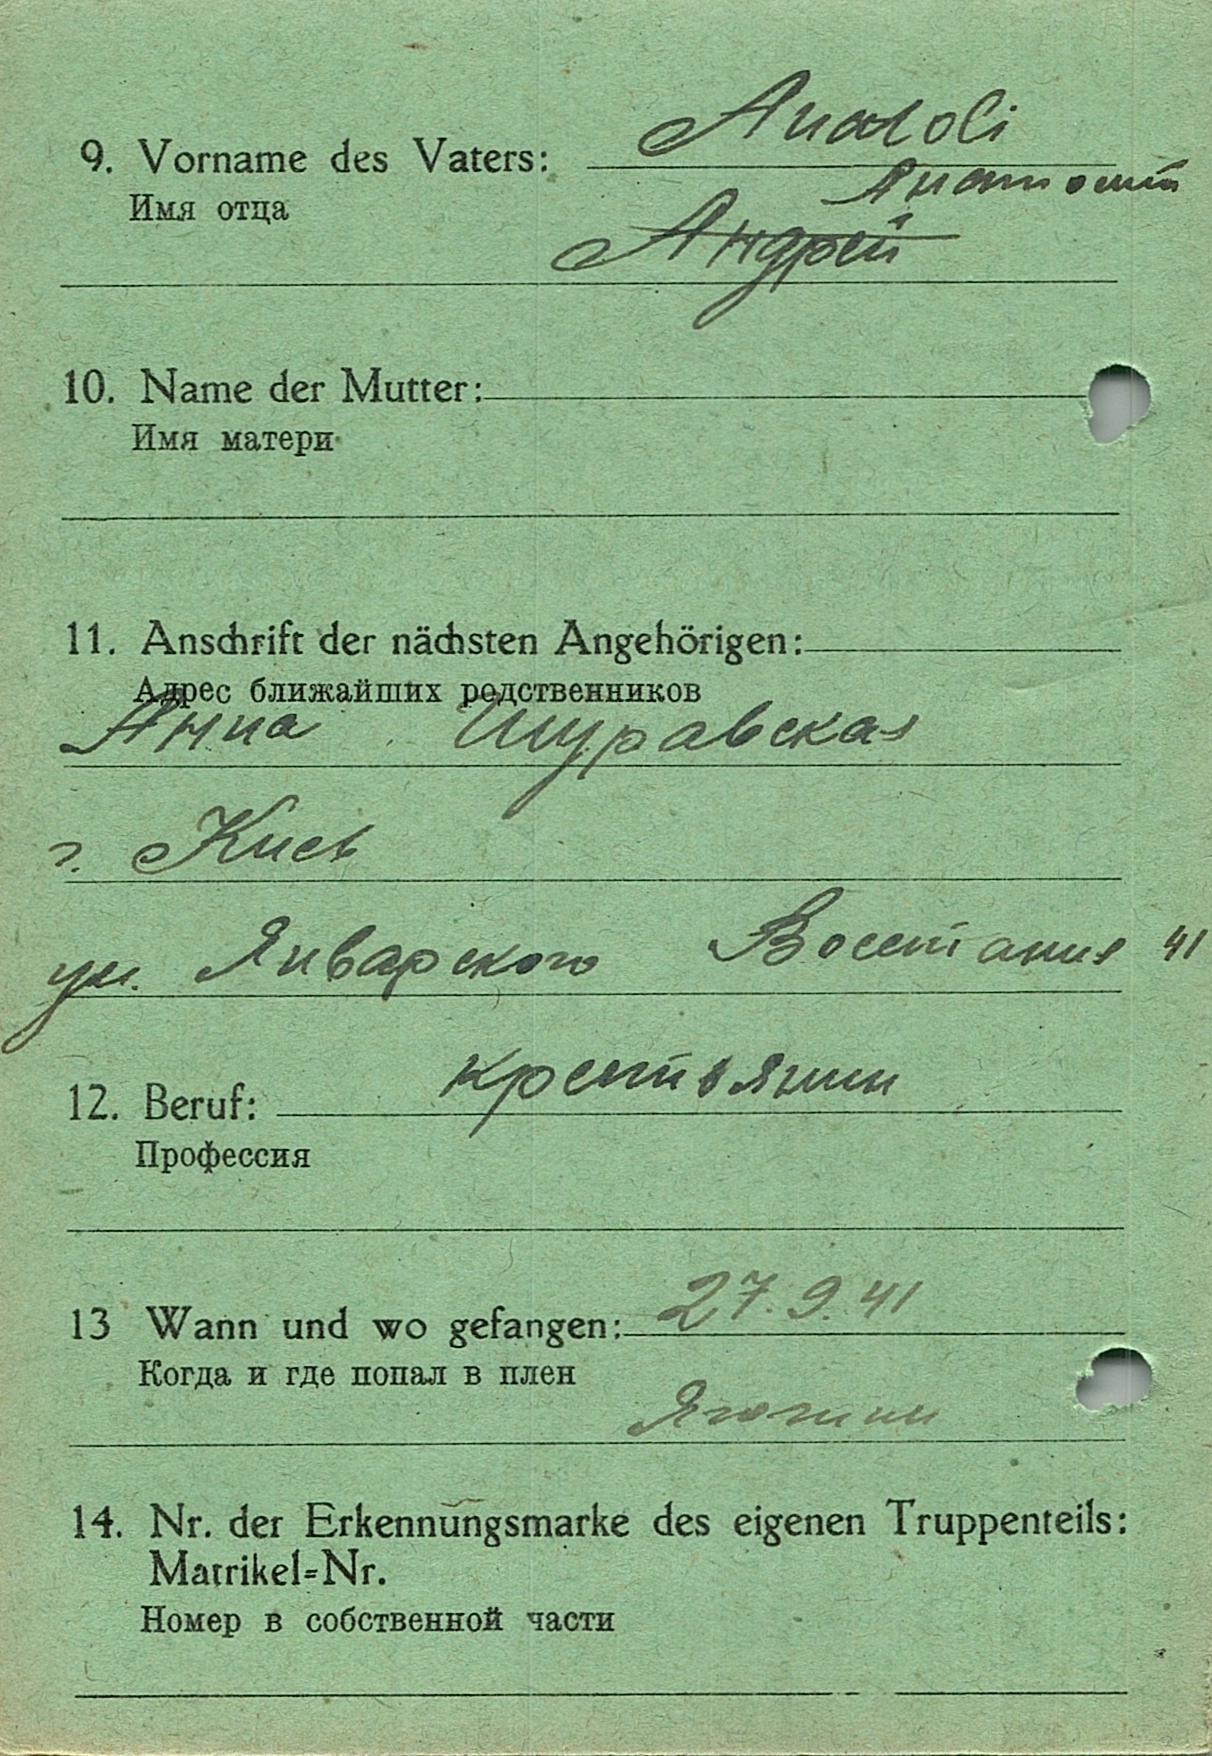 9. Vorname des Vaters: Anatoli
Имя отца Анатолий
Андрей
10. Name der Mutter:
Имя матери
11. Anschrift der nächsten Angehörigen:
Адрес ближайших родственников
Анна Шуравская
г. Киев
ул. Январского Восстания 41
12. Beruf: крестьянин
Профессия
13 Wann und wo gefangen: 27.9.41
Когда и где попал в плен
Яготин
14. Nr. der Erkennungsmarke des eigenen Truppenteils:
Matrikel=Nr.
Номер в собственной части